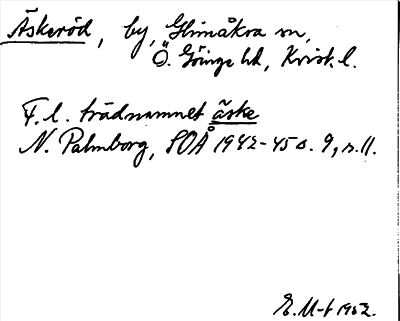 Äskeröd, by, Glimåkra sn,
Ö. Göinge hd, Krist. l.
F. l. trädnamnet äske
N. Palmborg, SOÅ 1942-45 s. 9, r. 11.
E. M-t 1952.